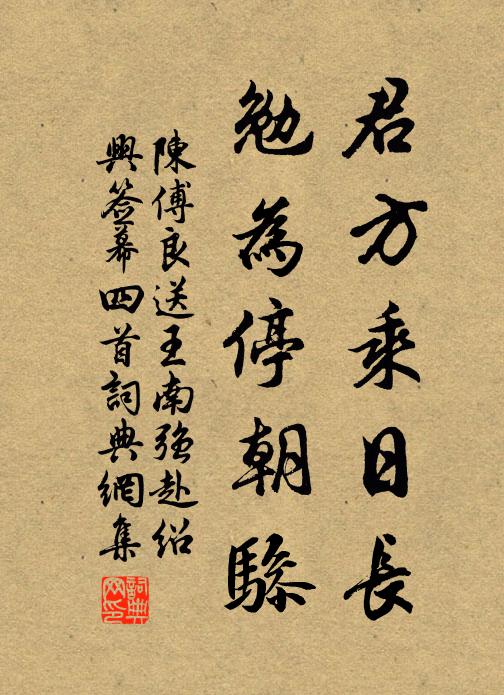 君方乘日長
勉為停朝驂
陳傅良送王南强赴紹
興签幕四首詞典網集
詞典
网印